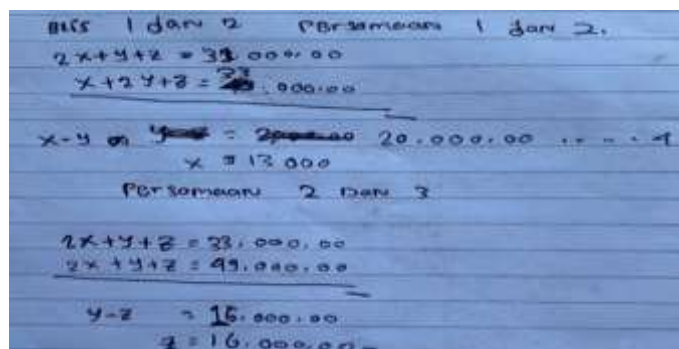 1 dan 2 Persamaan 1 dan 2.
2x+y+z = 39 000.00
x+2y+z = 33.000.00
x-y = 20.000.00 ..... 4
x = 13 000
Persamaan 2 Dan 3
2x+y+z = 33.000,00
2x+y+z = 49.000.00
y-z = 16.000.00
z = 16.000.00